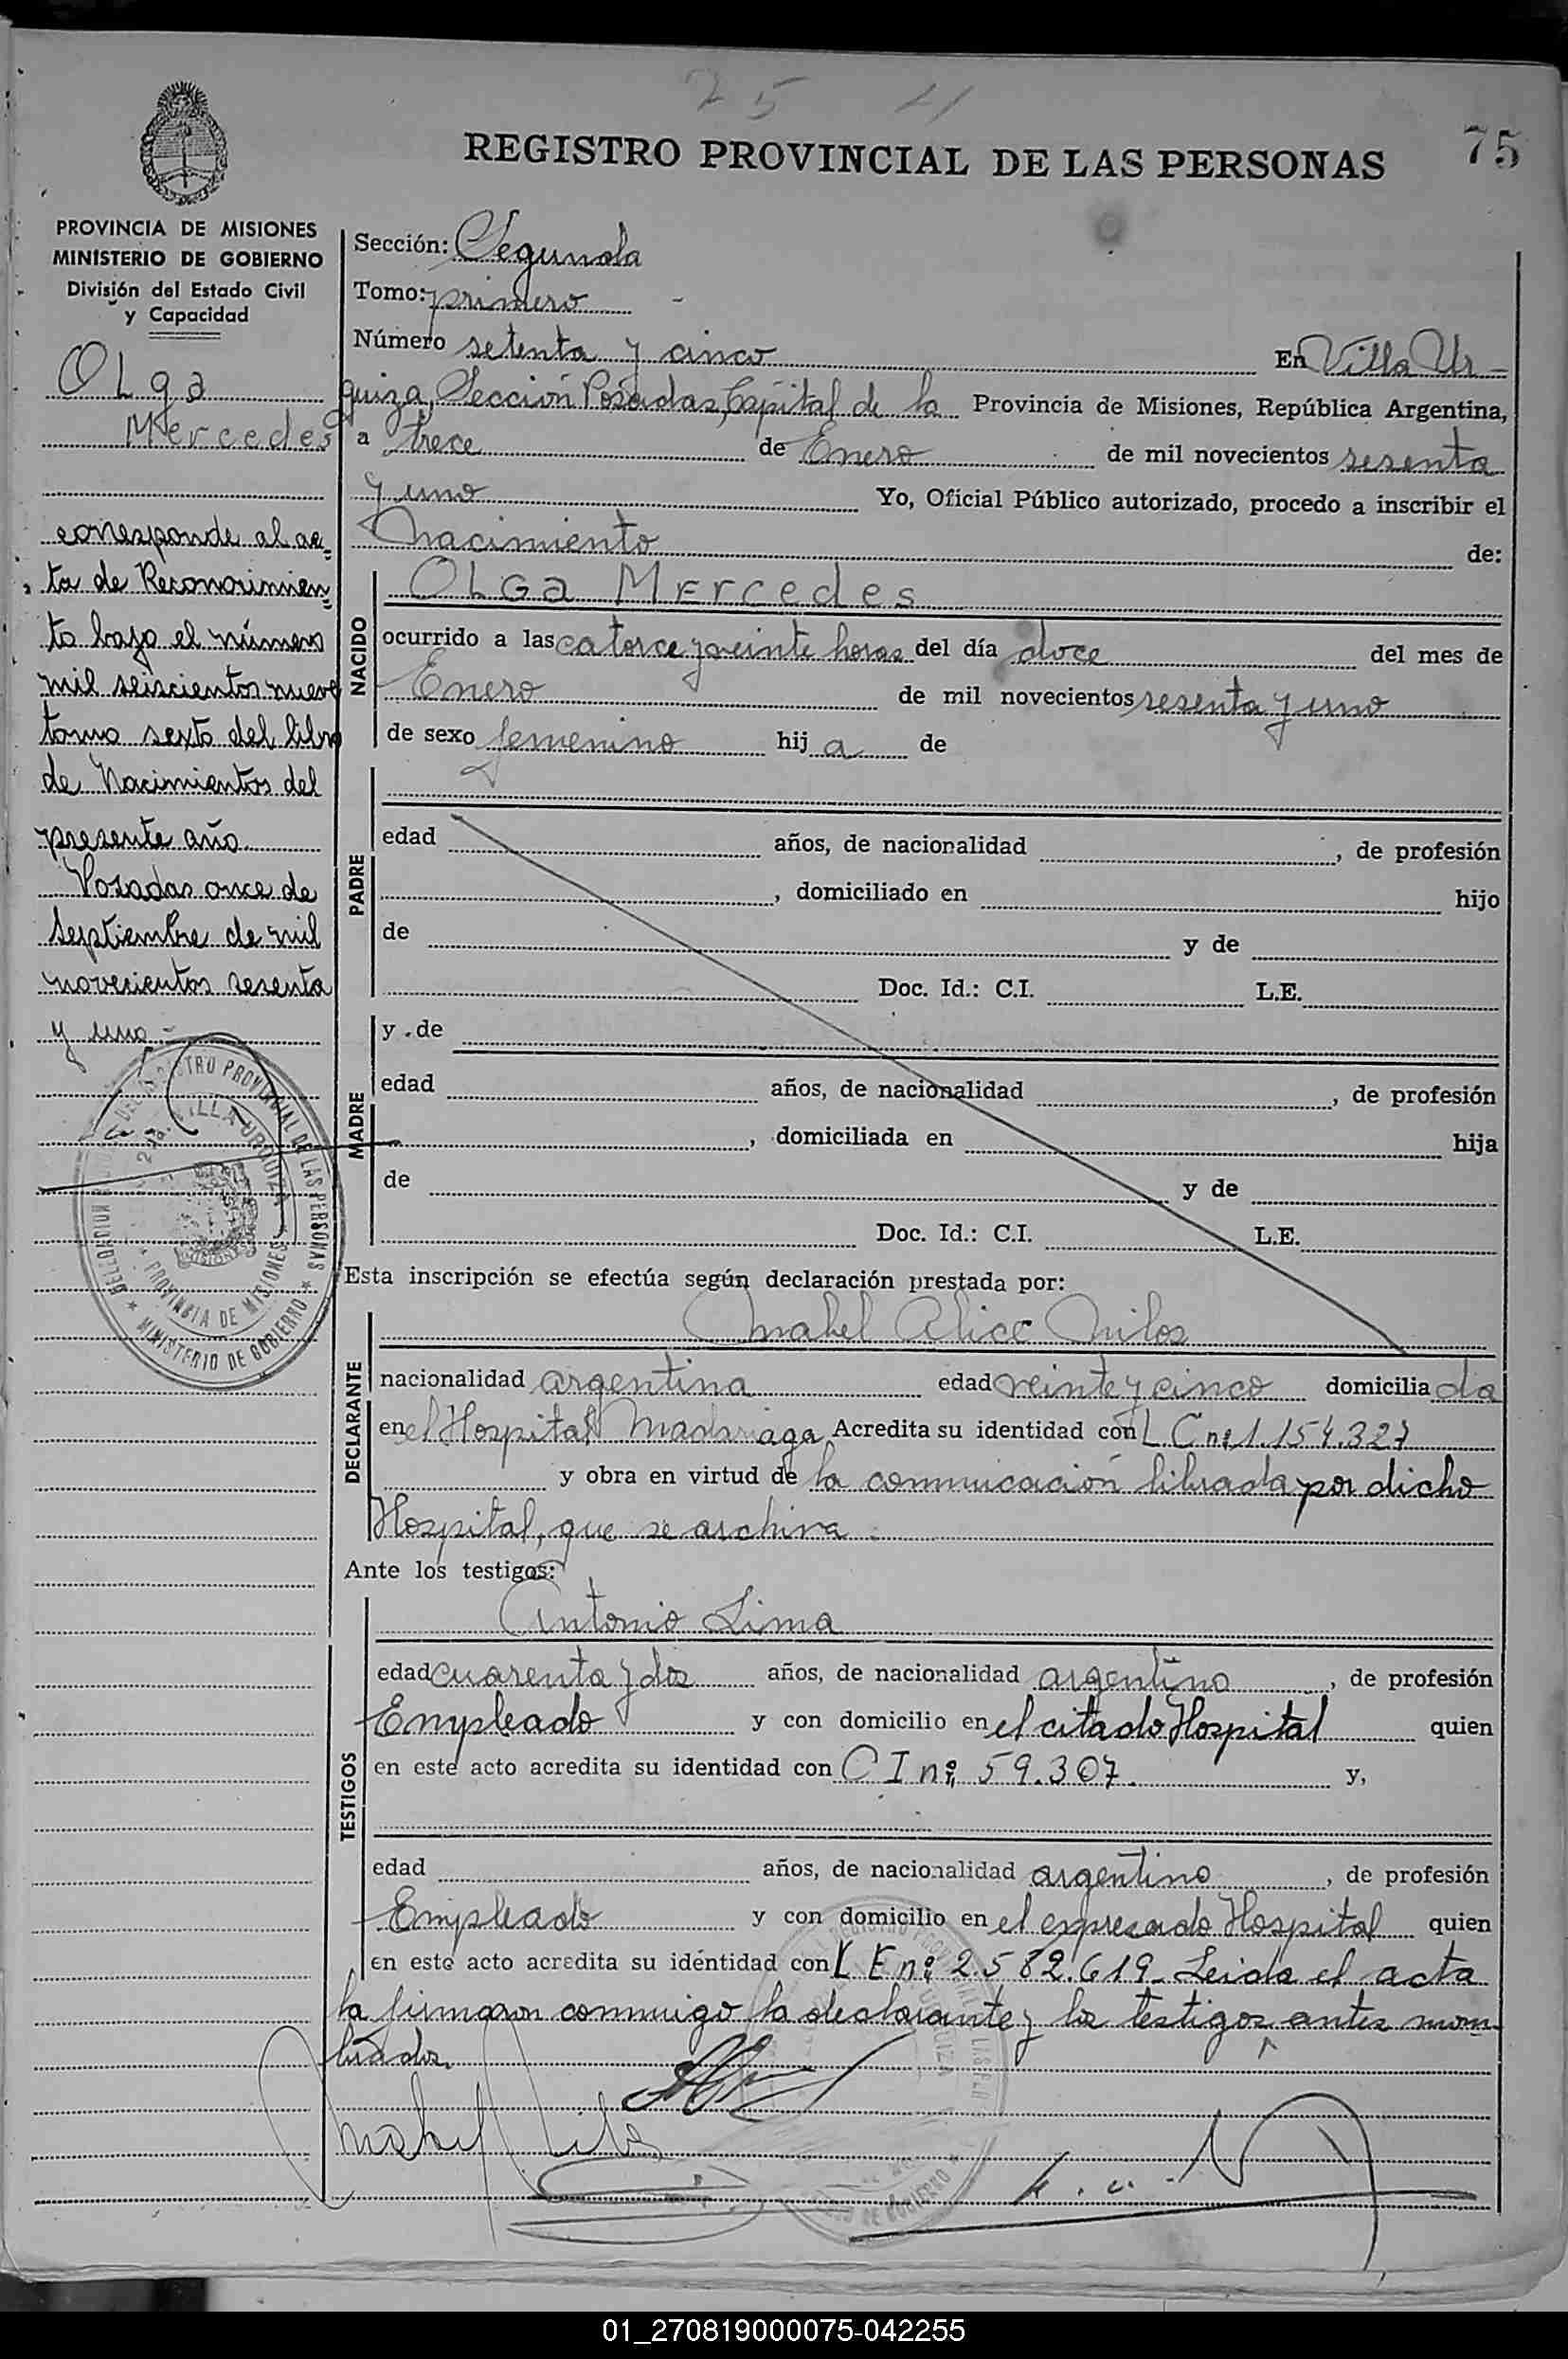 25
75
REGISTRO PROVINCIAL DE LAS PERSONAS
PROVINCIA DE MISIONES
MINISTERIO DE GOBIERNO
División del Estado Civil
y Capacidad
Olga
Mercedes
corresponde al ac-
ta de Reconocimien-
to bajo el número
mil seiscientos nueve
tomo sexto del libro
de Nacimientos del
presente año.
Posadas once de
Septiembre de mil
novecientos sesenta
y uno.-
Sección: Segunda
Tomo: primero -
Número setenta y cinco En Villa Ur-
quiza, Sección Posadas, Capital de la Provincia de Misiones, República Argentina,
a trece de Enero de mil novecientos sesenta
y uno Yo, Oficial Público autorizado, procedo a inscribir el
Nacimiento de:
NACIDO
OLGa MErcedes
ocurrido a las catorce y veinte horas del día doce del mes de
Enero de mil novecientos sesenta y uno
de sexo femenino hij a de
PADRE
edad años, de nacionalidad , de profesión
, domiciliado en hijo
de y de
Doc. Id.: C.I. L.E.
MADRE
y de
edad años, de nacionalidad , de profesión
, domiciliada en hija
de y de
Doc. Id.: C.I. L.E.
Esta inscripción se efectúa según declaración prestada por:
DECLARANTE
Mabel Alice Milos
nacionalidad argentina edad veinte y cinco domicilia da
en el Hospital Madariaga Acredita su identidad con L. C nº 1.154.327
y obra en virtud de la comunicación librada por dicho
Hospital, que se archiva.
Ante los testigos:
TESTIGOS
Antonio Lima
edad cuarenta y dos años, de nacionalidad argentino , de profesión
Empleado y con domicilio en el citado Hospital quien
en este acto acredita su identidad con C I nº 59.307. y,
edad años, de nacionalidad argentino , de profesión
Empleado y con domicilio en el expresado Hospital quien
en este acto acredita su identidad con L E nº 2.582.619. Leida el acta
la firmaron conmigo la declarante y los testigos antes nom
brados.
Mabel Milos
REGISTRO PROVINCIAL DE LAS PERSONAS
VILLA URQUIZA
PROVINCIA DE MISIONES
MINISTERIO DE GOBIERNO
01_270819000075-042255